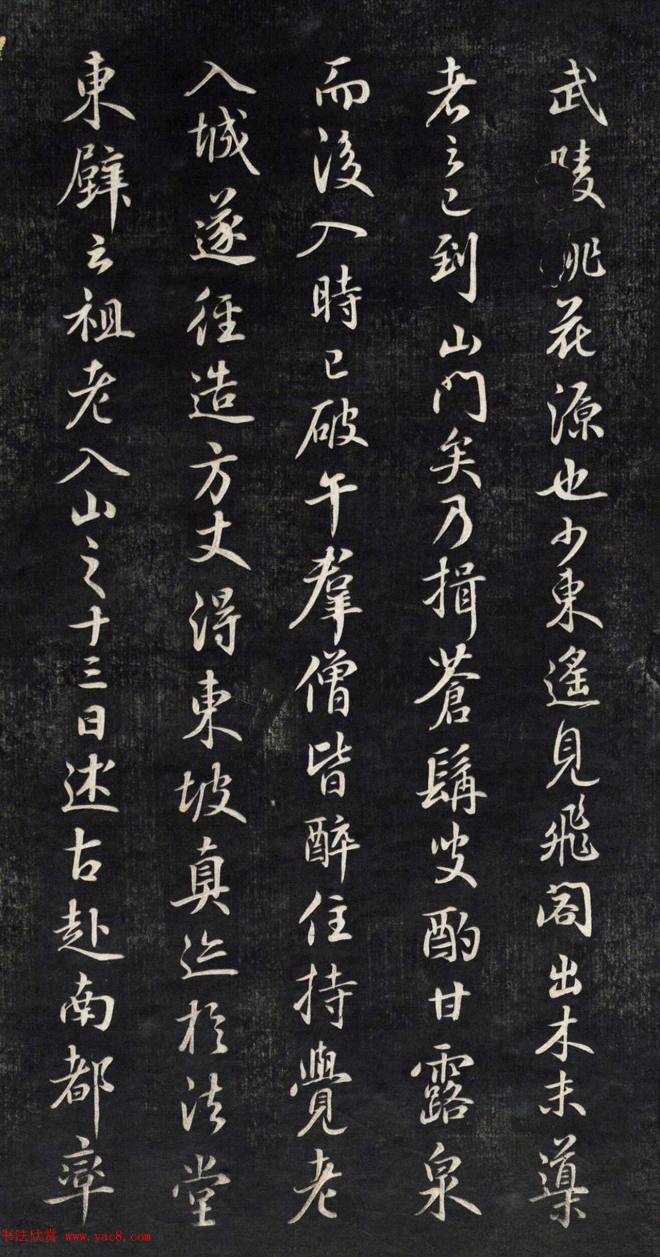 武陵桃花源也少東遙見飛閣出木末導
者云已到山門矣乃揖蒼髯叟酌甘露泉
而後入時已破午羣僧皆醉住持覺老
入城遂徑造方丈得東坡真迹於法堂
東壁云祖老入山之十三日述古赴南都率
书法欣赏 www.yac8.com